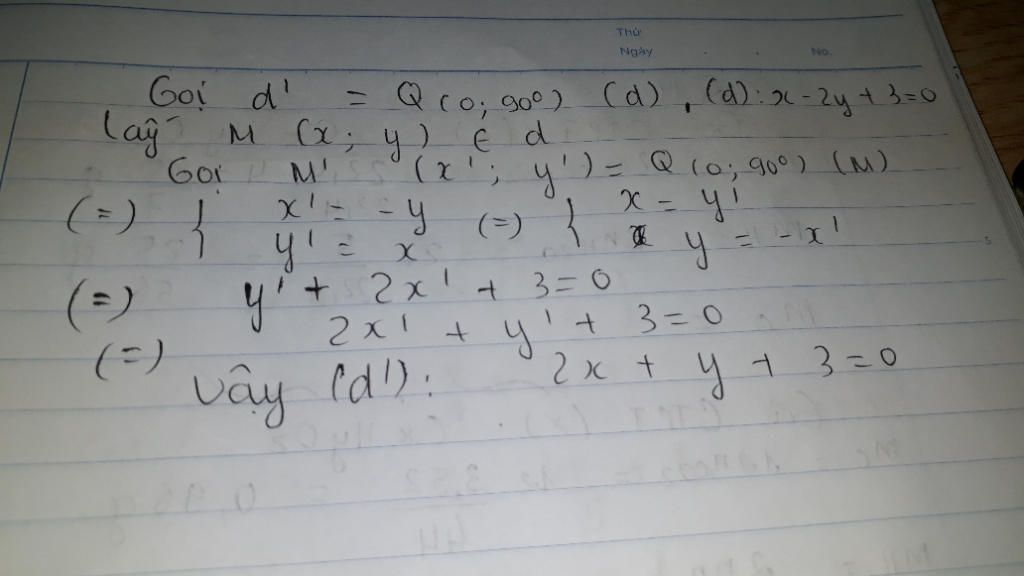 Thứ
Ngày . . No.
Gọi d' = Q (0; 90°) (d), (d): x - 2y + 3 = 0
Lấy M (x; y) ∈ d
Gọi M' (x'; y') = Q (0; 90°) (M)
(=) { x' = -y (=) { x = y'
y' = x y = -x'
(=) y' + 2x' + 3 = 0
(=) 2x' + y' + 3 = 0
Vậy (d'): 2x + y + 3 = 0